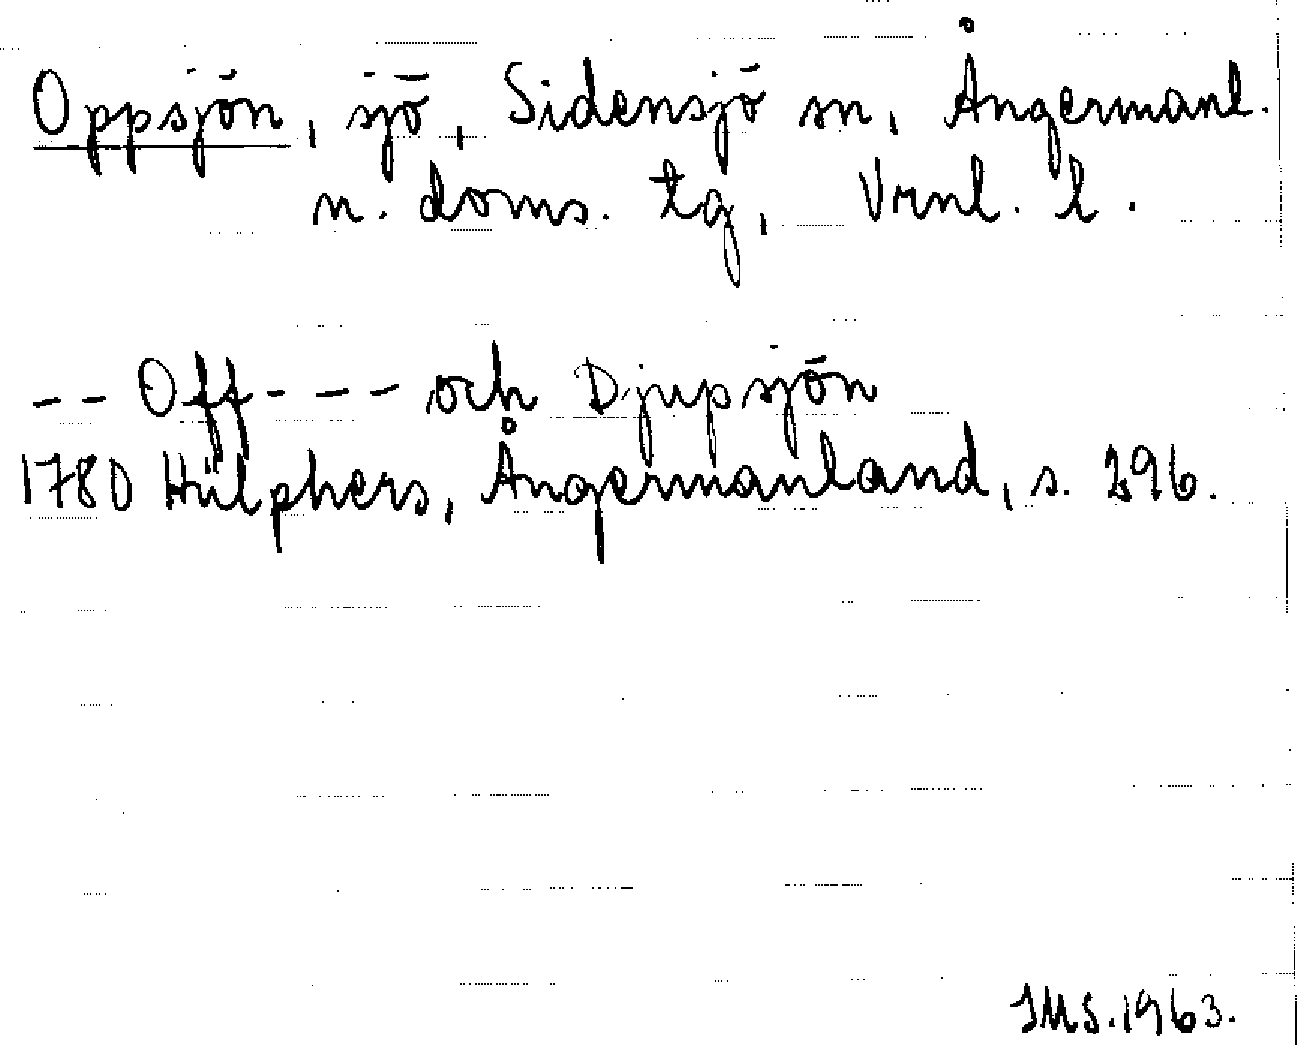 Oppsjön, sjö, Sidensjö sn, Ångermanl.
n. doms. tg, Vrnl. l.
-- Off --- och Djupsjön
1780 Hülphers, Ångermanland, s. 296.
IMS. 1963.